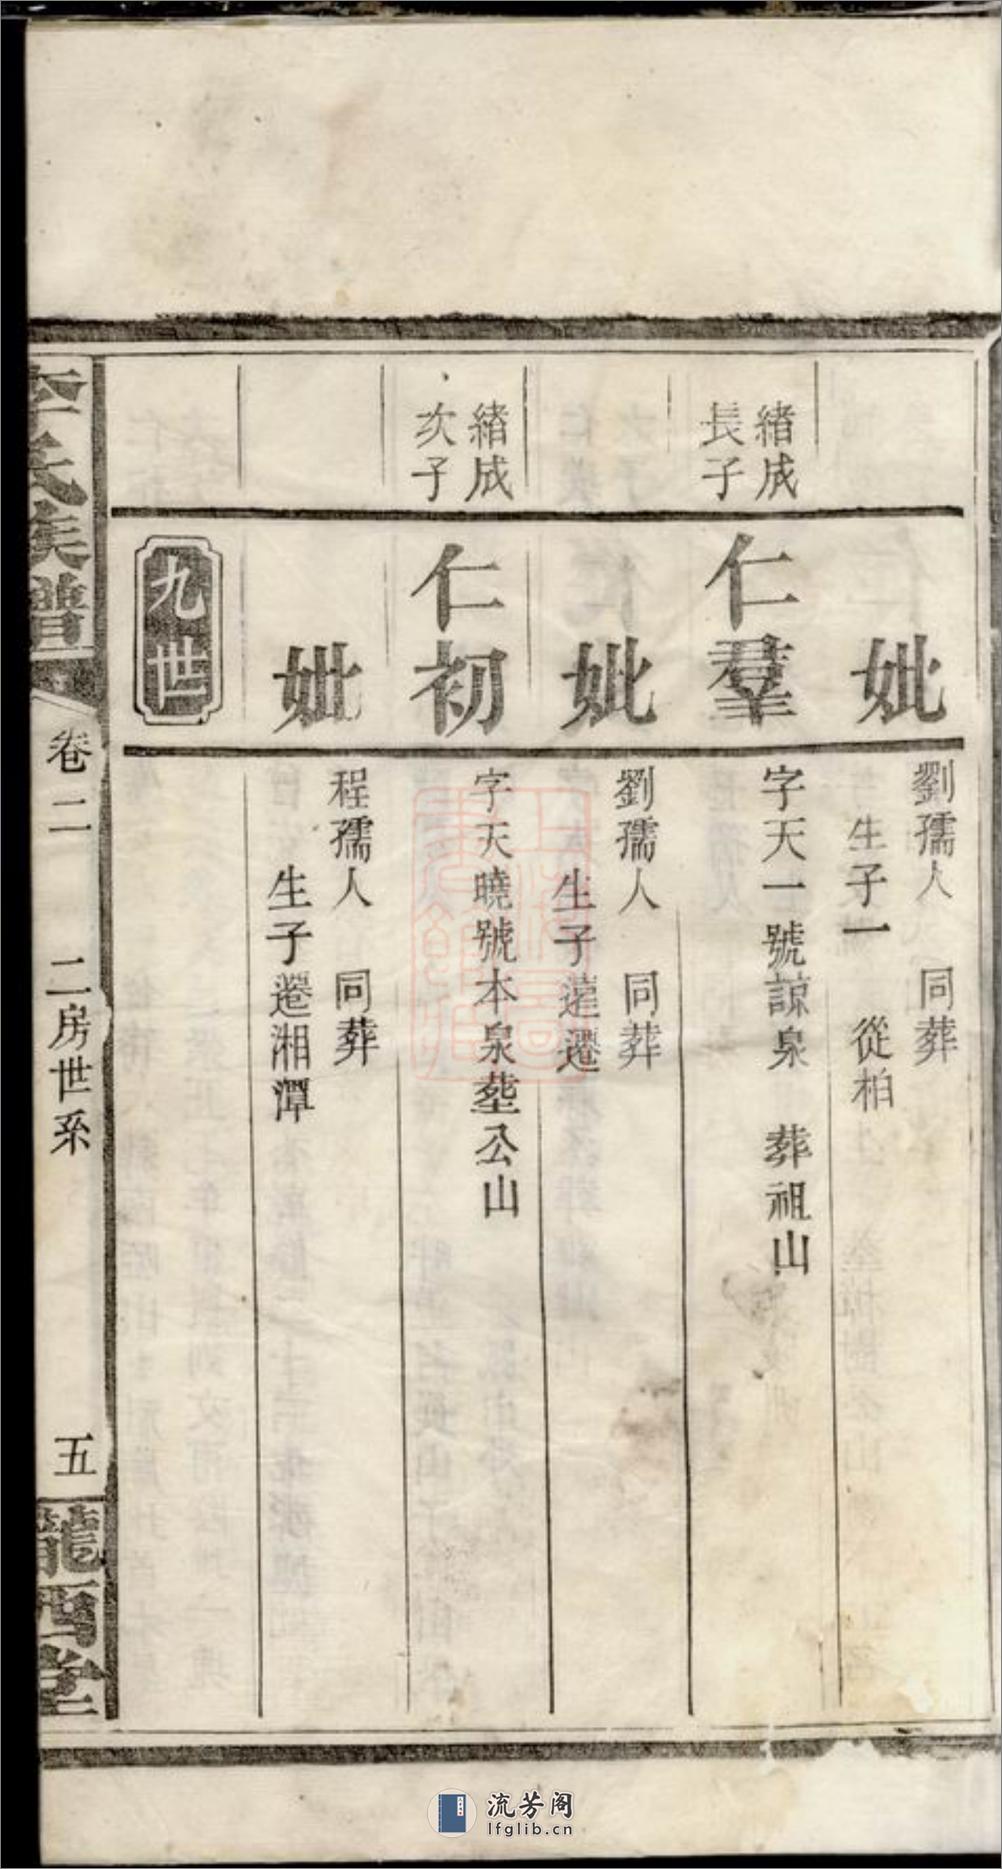 妣
劉孺人 同葬
生子一 從柏
緒成
長子
仁羣
字天一號諒泉 葬祖山
妣
劉孺人 同葬
生子遠遷
緒成
次子
仁初
字天曉號本泉塟公山
妣
程孺人 同葬
生子遷湘潭
九世
李氏族譜
卷二 二房世系
五
隴西堂
流芳阁
lfglib.cn